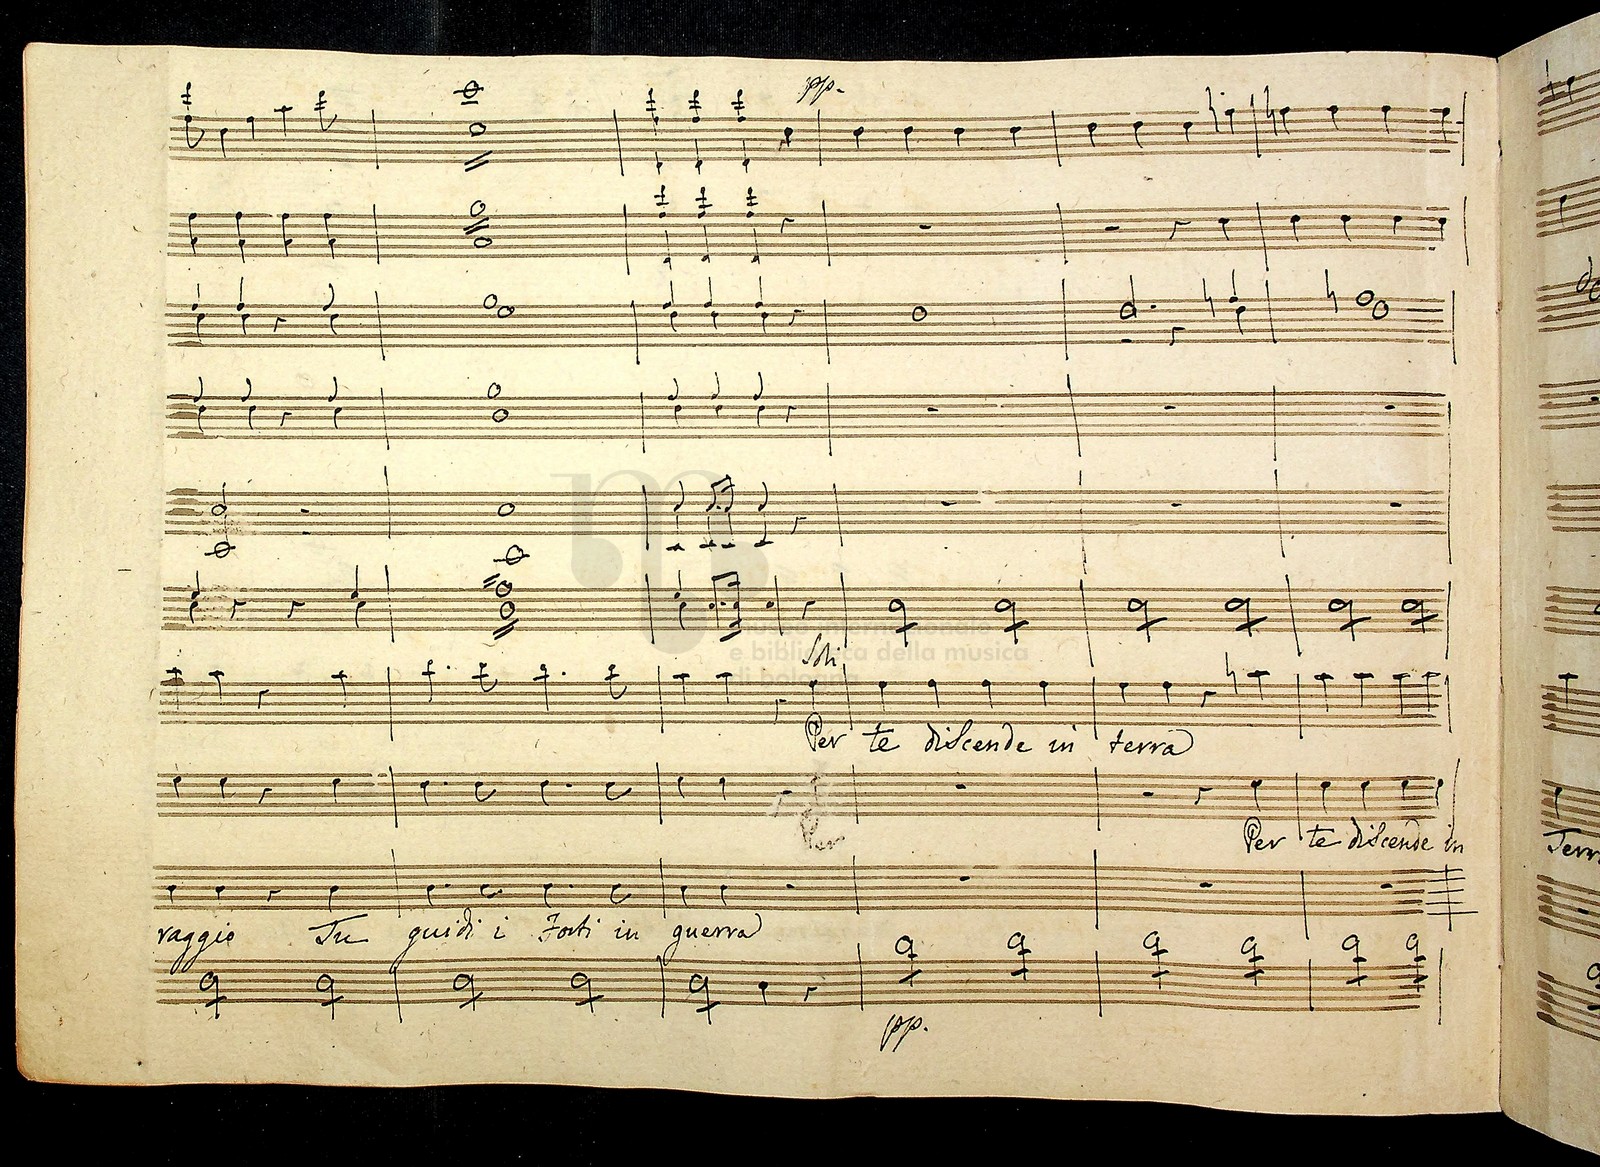 pp.
museo internazionale
e biblioteca della musica
di bologna
Soli
Per te discende in terra
Per
Per te discende in
raggio Tu guidi i Forti in guerra
pp.